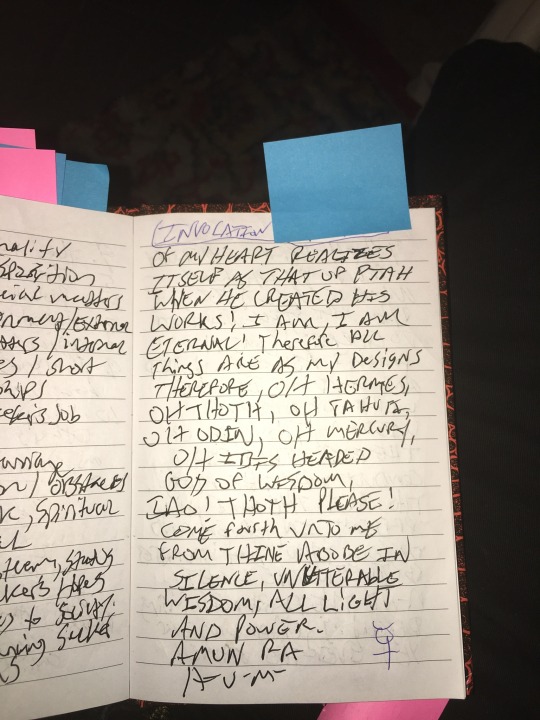 -nality
-cial matters
-onment/external
internal
/ short
-ships
-eker's Job
-arriage
-on/ obstacles
Spiritual
study
-eker's hopes
(INVOCATION
OF MY HEART REALIZES
ITSELF AS THAT UP PTAH
WHEN HE CREATED HIS
WORKS! I AM, I AM
ETERNAL! Therefore ALL
Things ARE AS MY DESIGNS
THEREFORE, O/H HERMES,
OH THOTH, OH TAHUTI,
O/H ODIN, OH MERCURY,
O/H IBIS HEADED
GOD OF WISDOM,
IAO! THOTH PLEASE!
COME fourth UNTO ME
FROM THINE ABODE IN
SILENCE, UNUTTERABLE
WISDOM, ALL LIGHT
AND POWER.
AMUN RA
A-U-M-